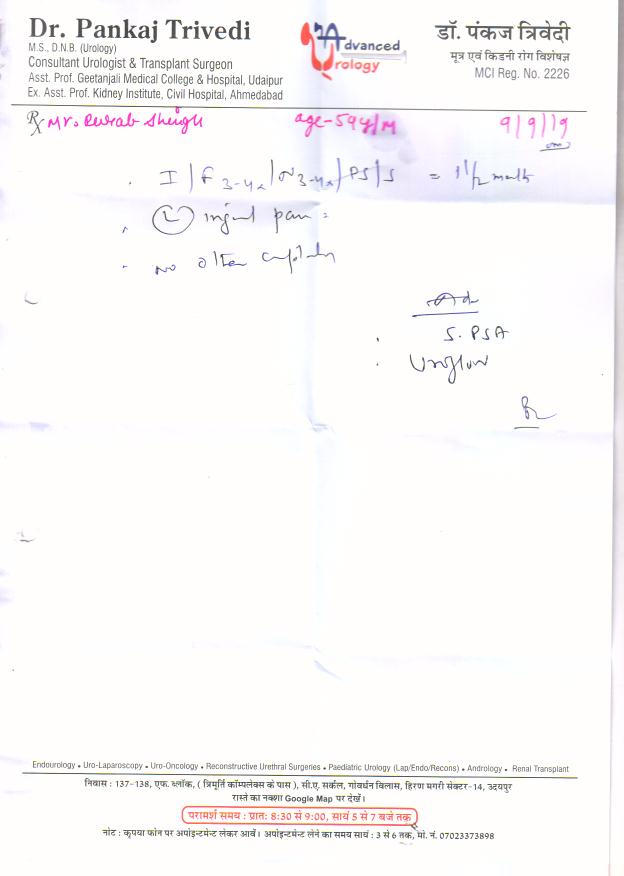 Dr. Pankaj Trivedi
M.S., D.N.B. (Urology)
Consultant Urologist & Transplant Surgeon
Asst. Prof. Geetanjali Medical College & Hospital, Udaipur
Ex. Asst. Prof. Kidney Institute, Civil Hospital, Ahmedabad
Advanced
Urology
डॉ. पंकज त्रिवेदी
मूत्र एवं किडनी रोग विशेषज्ञ
MCI Reg. No. 2226
Rx Mr. Sheigh age-59y/M 9/9/19
I/F 3-4x/N 3-4x/PS/S = 1 1/2 month
(L) pain
no other
Ad
S. PSA
Uroflow
Endourology • Uro-Laparoscopy • Uro-Oncology • Reconstructive Urethral Surgeries • Paediatric Urology (Lap/Endo/Recons) • Andrology • Renal Transplant
निवास : 137-138, एफ. ब्लॉक, ( त्रिमूर्ति कॉम्पलेक्स के पास ), सी.ए. सर्कल, गोवर्धन विलास, हिरण मगरी सेक्टर-14, उदयपुर
रास्ते का नक्शा Google Map पर देखें।
परामर्श समय : प्रातः 8:30 से 9:00, सायं 5 से 7 बजे तक
नोट : कृपया फोन पर अपोइन्टमेन्ट लेकर आवें। अपोइंटमेन्ट लेने का समय सायं : 3 से 6 तक, मो. नं. 07023373898